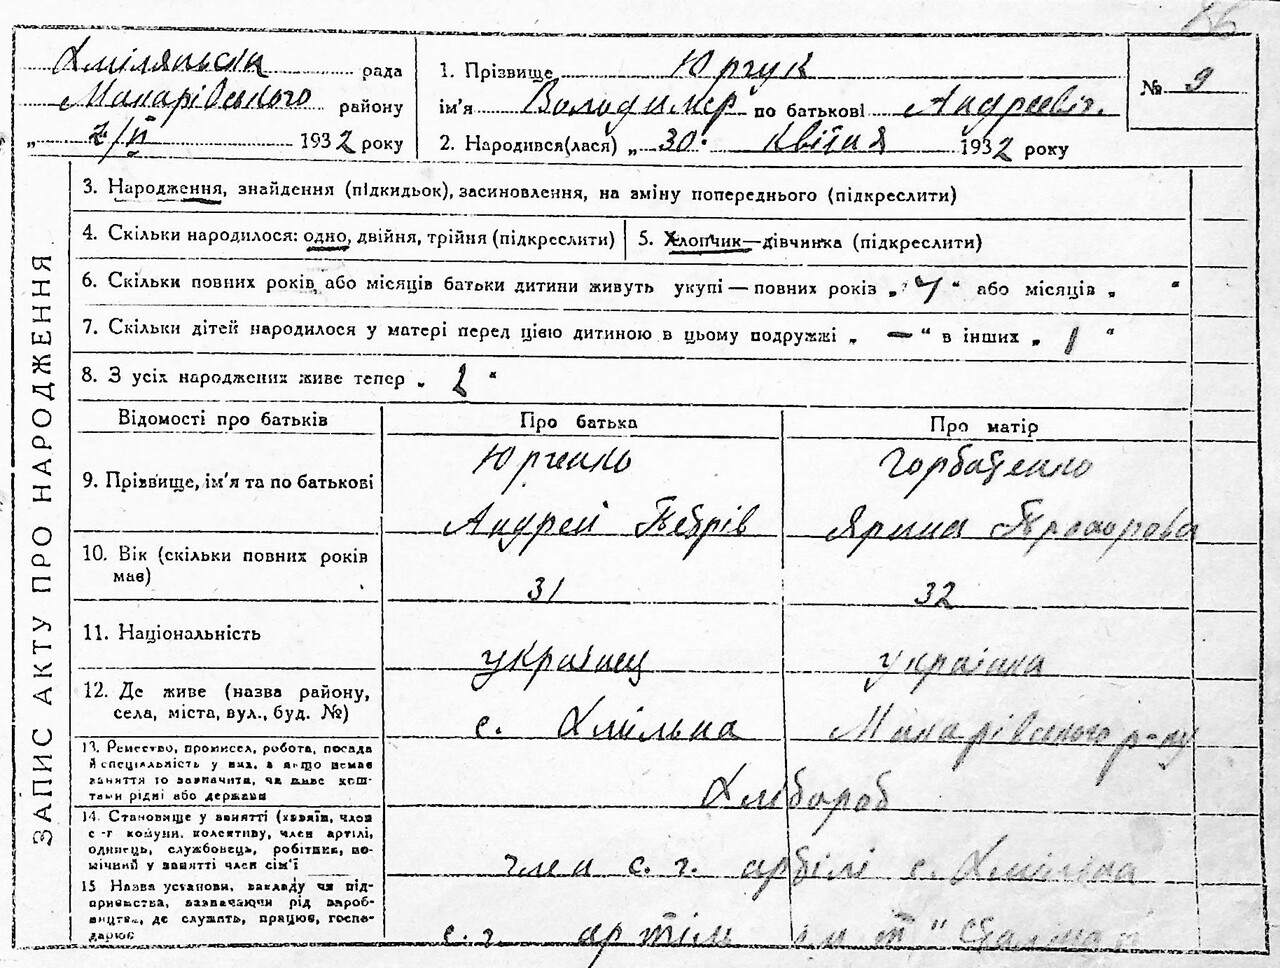 86
Хмілянська рада
Макарівського району
„ 2/V 1932 року
1. Прізвище Юрчук
ім'я Володимер по батькові Андреевіч.
2. Народився(лася) „ 30. Квітня 1932 року
№ 9
ЗАПИС АКТУ ПРО НАРОДЖЕННЯ
3. Народження, знайдення (підкидьок), засиновлення, на зміну попереднього (підкреслити)
4. Скільки народилося: одно, двійня, трійня (підкреслити)
5. Хлопчик—дівчинка (підкреслити)
6. Скільки повних років або місяців батьки дитини живуть укупі — повних років „ 7 “ або місяців „ “
7. Скільки дітей народилося у матері перед цією дитиною в цьому подружжі „ — “ в інших „ 1 “
8. З усіх народжених живе тепер „ 2 “
Відомості про батьків
Про батька
Про матір
9. Прізвище, ім'я та по батькові
Юрченко
Андрей Петрів
Горбаченко
Ярина Прохорова
10. Вік (скільки повних років
має)
31
32
11. Національність
українец
українка
12. Де живе (назва району,
села, міста, вул., буд. №)
с. Хмільна
Макарівського р-ну
13. Ремество, промисел, робота, посада
й спеціяльність у них, а якщо немає
заняття то зазначити, чи живе кош-
тами рідні або держави
Хлібороб
14. Становище у занятті (хазяїн, член
с.-г комуни, колективу, член артілі,
одинець, службовець, робітник, по-
мічний у занятті член сім'ї
член с. г. артілі с. Хмільна
15 Назва установи, закладу чи під-
приємства, зазначаючи рід вироб-
ництва, де служить, працює, госпо-
дарює
с. г. артіль ім т "Сталіна"